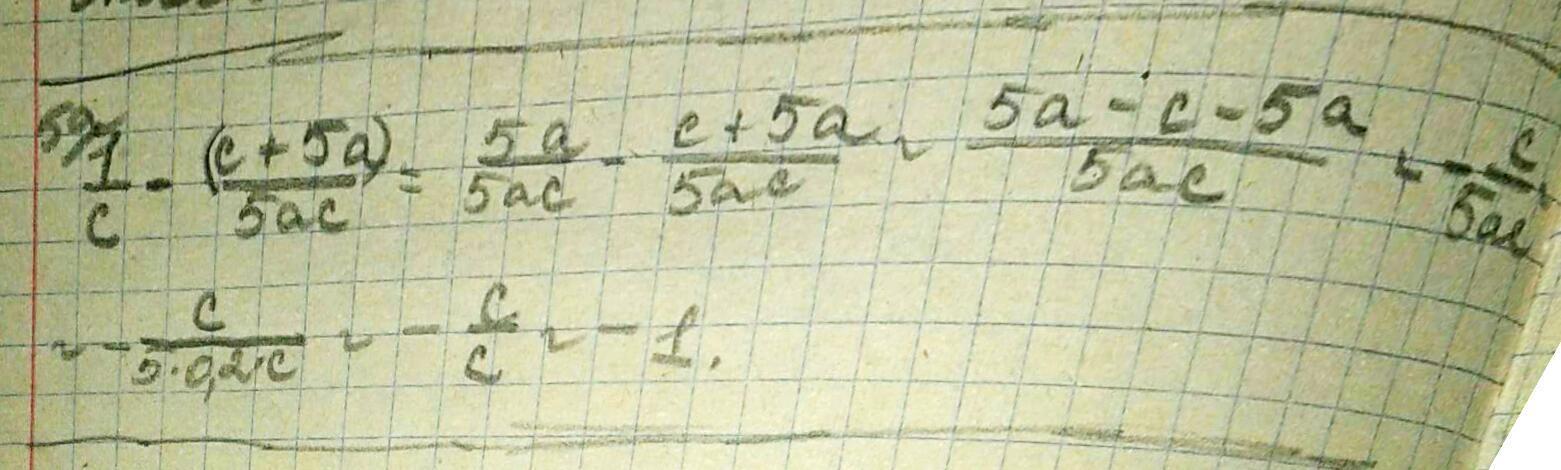 1/c - (c+5a)/5ac = 5a/5ac - c+5a/5ac ~ 5a-c-5a/5ac ~ -c/5ac
~ - c/5·0,2·c ~ - c/c ~ - 1.